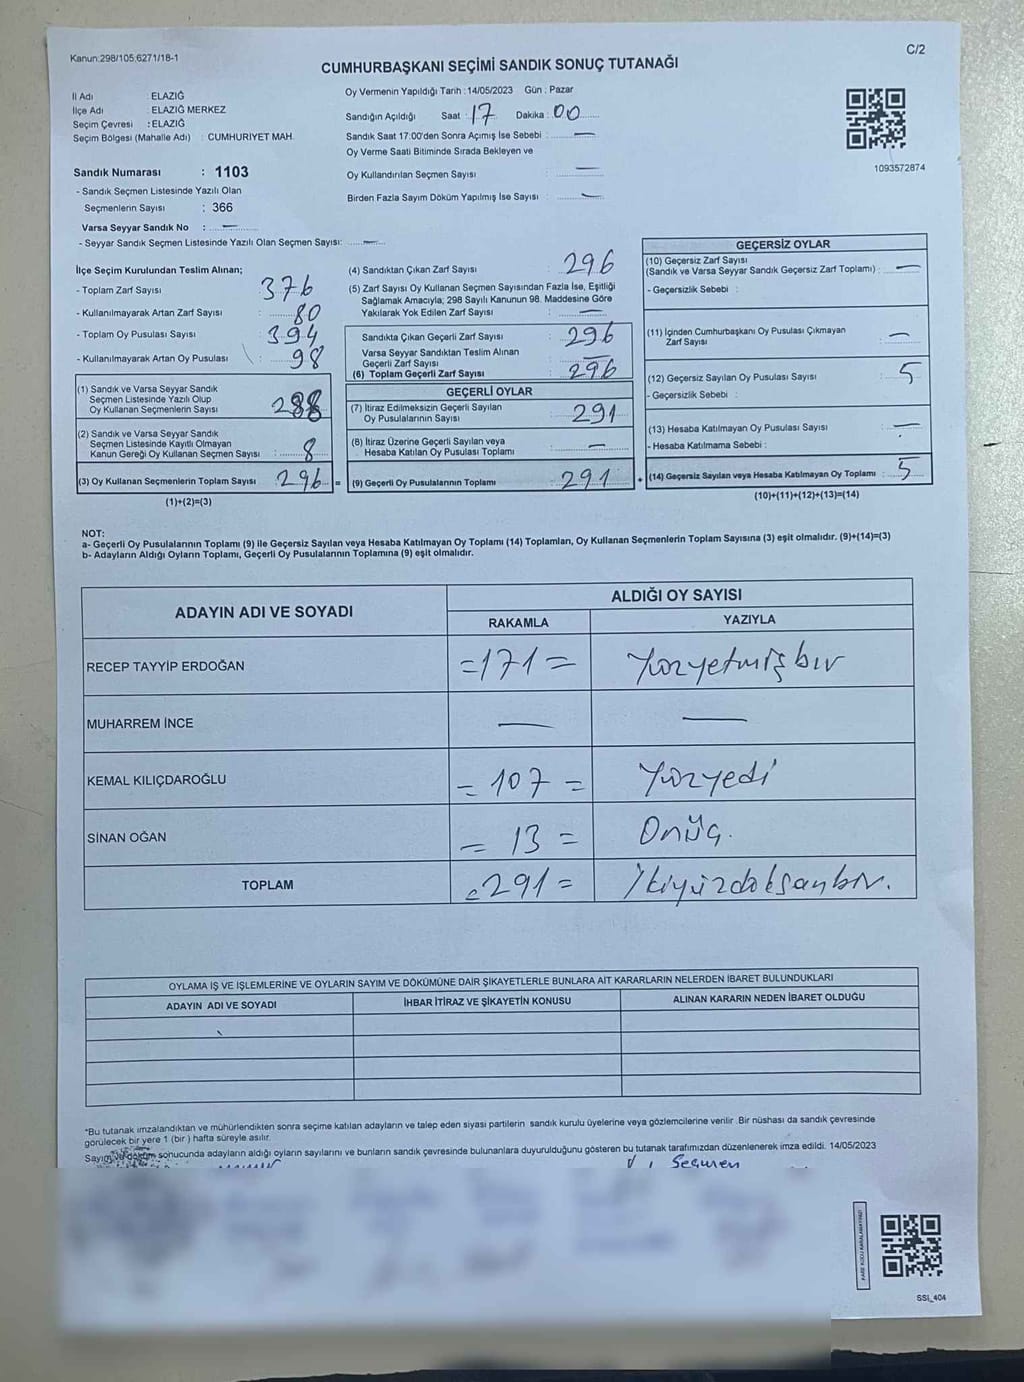 Kanun:298/105;6271/18-1
C/2
CUMHURBAŞKANI SEÇİMİ SANDIK SONUÇ TUTANAĞI
İl Adı : ELAZIĞ
İlçe Adı : ELAZIĞ MERKEZ
Seçim Çevresi : ELAZIĞ
Seçim Bölgesi (Mahalle Adı) : CUMHURİYET MAH.
Oy Vermenin Yapıldığı Tarih : 14/05/2023 Gün : Pazar
Sandığın Açıldığı Saat : 17 Dakika : 00
Sandık Saat 17:00'den Sonra Açımış İse Sebebi : —
Oy Verme Saati Bitiminde Sırada Bekleyen ve
Oy Kullandırılan Seçmen Sayısı : —
Birden Fazla Sayım Döküm Yapılmış İse Sayısı : —
1093572874
Sandık Numarası : 1103
- Sandık Seçmen Listesinde Yazılı Olan
Seçmenlerin Sayısı : 366
Varsa Seyyar Sandık No : —
- Seyyar Sandık Seçmen Listesinde Yazılı Olan Seçmen Sayısı: —
İlçe Seçim Kurulundan Teslim Alınan;
- Toplam Zarf Sayısı : 376
- Kullanılmayarak Artan Zarf Sayısı : 80
- Toplam Oy Pusulası Sayısı : 394
- Kullanılmayarak Artan Oy Pusulası : 98
(1) Sandık ve Varsa Seyyar Sandık
Seçmen Listesinde Yazılı Olup
Oy Kullanan Seçmenlerin Sayısı : 288
(2) Sandık ve Varsa Seyyar Sandık
Seçmen Listesinde Kayıtlı Olmayan
Kanun Gereği Oy Kullanan Seçmen Sayısı : 8
(3) Oy Kullanan Seçmenlerin Toplam Sayısı : 296 =
(1)+(2)=(3)
(4) Sandıktan Çıkan Zarf Sayısı : 296
(5) Zarf Sayısı Oy Kullanan Seçmen Sayısından Fazla İse, Eşitliği
Sağlamak Amacıyla; 298 Sayılı Kanunun 98. Maddesine Göre
Yakılarak Yok Edilen Zarf Sayısı : —
Sandıkta Çıkan Geçerli Zarf Sayısı : 296
Varsa Seyyar Sandıktan Teslim Alınan
Geçerli Zarf Sayısı : —
(6) Toplam Geçerli Zarf Sayısı : 296
GEÇERLİ OYLAR
(7) İtiraz Edilmeksizin Geçerli Sayılan
Oy Pusulalarının Sayısı : 291
(8) İtiraz Üzerine Geçerli Sayılan veya
Hesaba Katılan Oy Pusulası Toplamı : —
(9) Geçerli Oy Pusulalarının Toplamı : 291 +
GEÇERSİZ OYLAR
(10) Geçersiz Zarf Sayısı
(Sandık ve Varsa Seyyar Sandık Geçersiz Zarf Toplamı) : —
- Geçersizlik Sebebi :
(11) İçinden Cumhurbaşkanı Oy Pusulası Çıkmayan
Zarf Sayısı : —
(12) Geçersiz Sayılan Oy Pusulası Sayısı : 5
- Geçersizlik Sebebi :
(13) Hesaba Katılmayan Oy Pusulası Sayısı : —
- Hesaba Katılmama Sebebi :
(14) Geçersiz Sayılan veya Hesaba Katılmayan Oy Toplamı : 5
(10)+(11)+(12)+(13)=(14)
NOT:
a- Geçerli Oy Pusulalarının Toplamı (9) ile Geçersiz Sayılan veya Hesaba Katılmayan Oy Toplamı (14) Toplamları, Oy Kullanan Seçmenlerin Toplam Sayısına (3) eşit olmalıdır. (9)+(14)=(3)
b- Adayların Aldığı Oyların Toplamı, Geçerli Oy Pusulalarının Toplamına (9) eşit olmalıdır.
ADAYIN ADI VE SOYADI
ALDIĞI OY SAYISI
RAKAMLA YAZIYLA
RECEP TAYYİP ERDOĞAN =171= Yüzyetmişbir
MUHARREM İNCE — —
KEMAL KILIÇDAROĞLU =107= Yüzyedi
SİNAN OĞAN =13= Onüç.
TOPLAM =291= İkiyüzdoksanbir.
OYLAMA İŞ VE İŞLEMLERİNE VE OYLARIN SAYIM VE DÖKÜMÜNE DAİR ŞİKAYETLERLE BUNLARA AİT KARARLARIN NELERDEN İBARET BULUNDUKLARI
ADAYIN ADI VE SOYADI İHBAR İTİRAZ VE ŞİKAYETİN KONUSU ALINAN KARARIN NEDEN İBARET OLDUĞU
*Bu tutanak imzalandıktan ve mühürlendikten sonra seçime katılan adayların ve talep eden siyasi partilerin sandık kurulu üyelerine veya gözlemcilerine verilir. Bir nüshası da sandık çevresinde
görülecek bir yere 1 (bir ) hafta süreyle asılır.
Sayım ve döküm sonucunda adayların aldığı oyların sayılarını ve bunların sandık çevresinde bulunanlara duyurulduğunu gösteren bu tutanak tarafımızdan düzenlenerek imza edildi. 14/05/2023
Seçmen
KARE KODU KARALAMAYINIZ!
SSİ_404